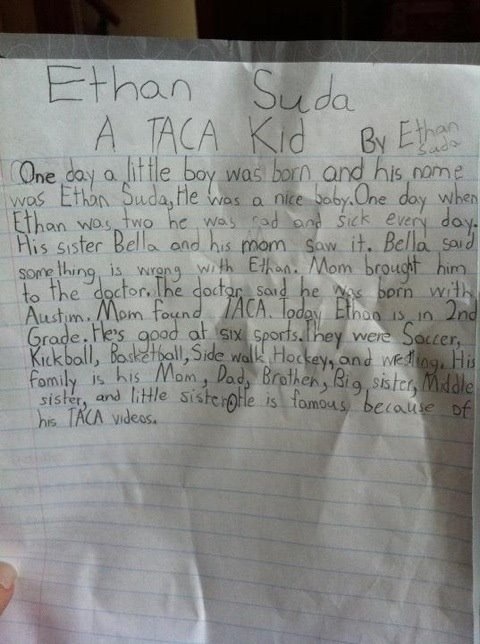 Ethan Suda
A TACA Kid By Ethan Suda
One day a little boy was born and his name
was Ethan Suda, He was a nice baby. One day when
Ethan was two he was sad and sick every day.
His sister Bella and his mom saw it. Bella said
something is wrong with Ethan. Mom brought him
to the doctor. The doctor said he was born with
Austim. Mom found TACA. Today Ethan is in 2nd
Grade. He's good at six sports. They were Soccer,
Kickball, Basketball, Side walk Hockey, and His
family is his Mom, Dad, Brother, Big sister, Middle
sister, and little sister. He is famous because of
his TACA videos.